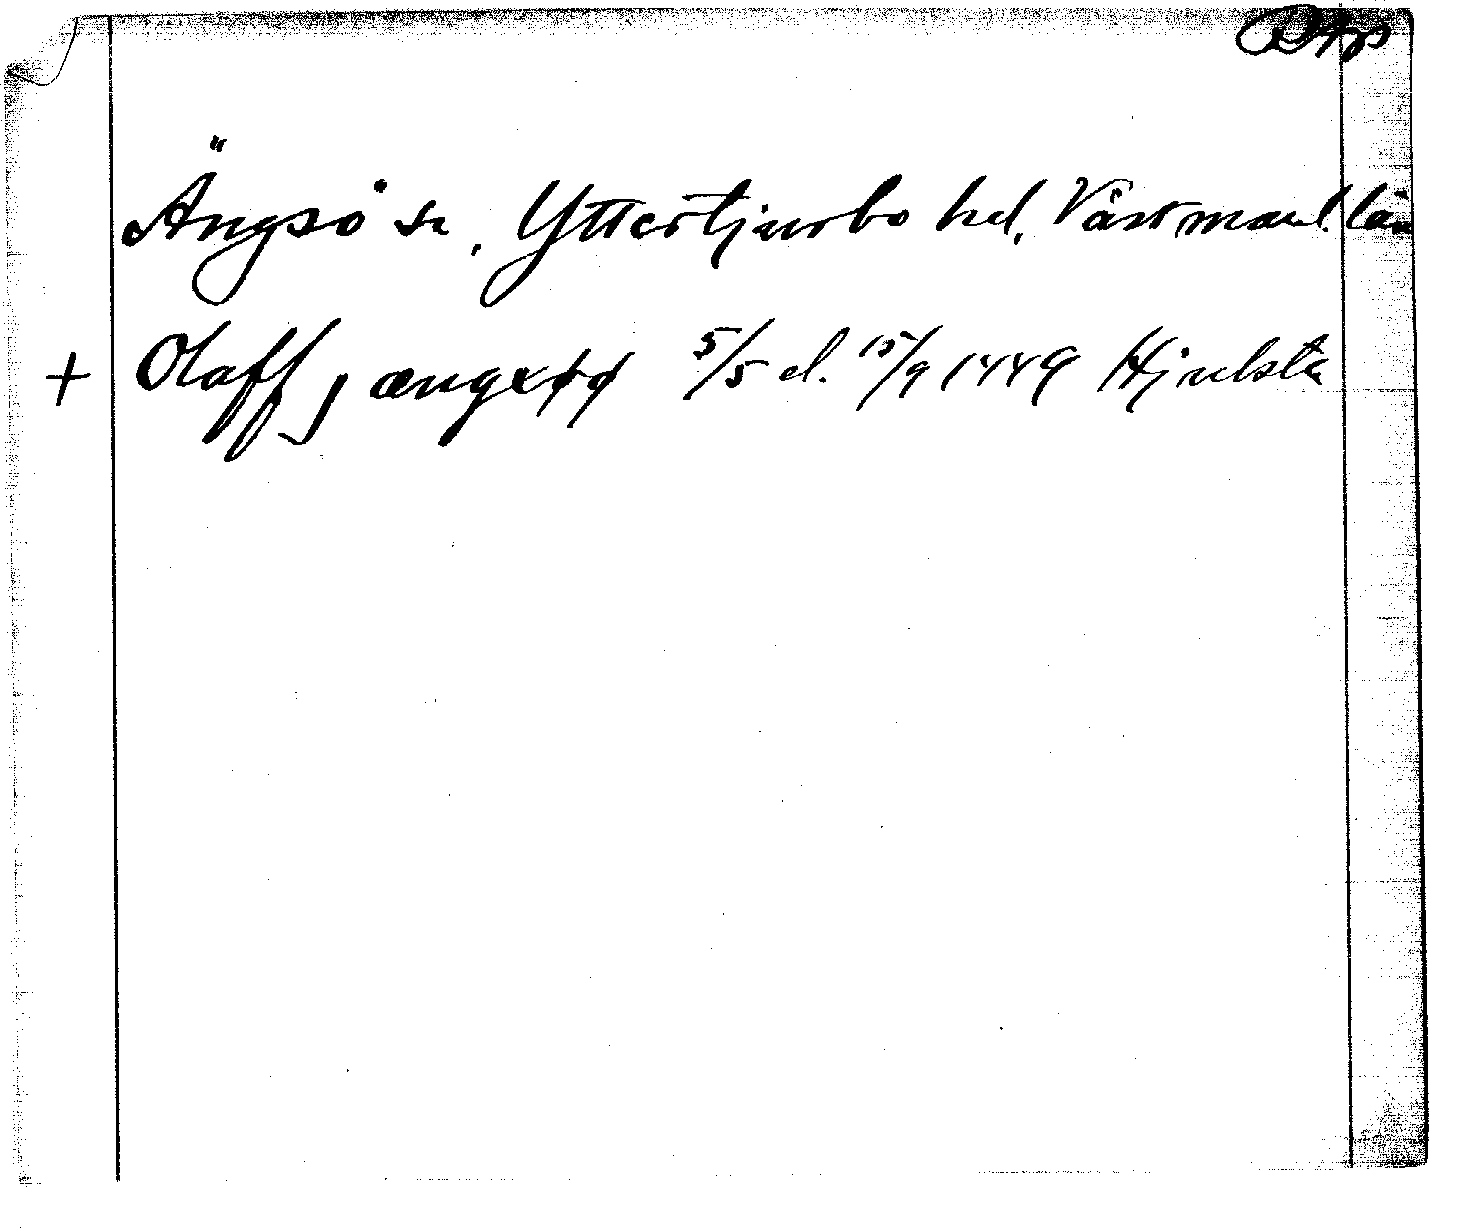 Ängsö sn, Yttertjurbo hd, Västmanl. län
+ Olaff j ængxøø 5/5 el. 15/9 1449 Hjulsta